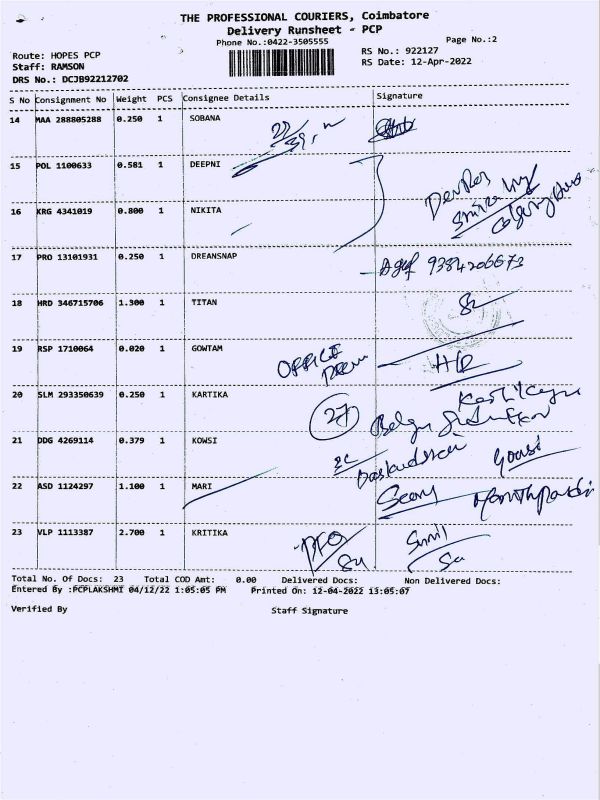 THE PROFESSIONAL COURIERS, Coimbatore
Delivery Runsheet - PCP
Phone No.:0422-3505555
Page No.:2
Route: HOPES PCP
Staff: RAMSON
DRS No.: DCJB92212702
RS No.: 922127
RS Date: 12-Apr-2022
S No Consignment No Weight PCS Consignee Details Signature
14 MAA 288805288 0.250 1 SOBANA
15 POL 1100633 0.581 1 DEEPNI
16 KRG 4341019 0.800 1 NIKITA
17 PRO 13101931 0.250 1 DREANSNAP 9384206673
18 HRD 346715706 1.300 1 TITAN
19 RSP 1710064 0.020 1 GOWTAM OFFICE HR
20 SLM 293350639 0.250 1 KARTIKA 27
21 DDG 4269114 0.379 1 KOWSI
22 ASD 1124297 1.100 1 MARI
23 VLP 1113387 2.700 1 KRITIKA Sunil
Total No. Of Docs: 23 Total COD Amt: 0.00 Delivered Docs: Non Delivered Docs:
Entered By :PCPLAKSHMI 04/12/22 1:05:05 PM Printed On: 12-04-2022 13:05:07
Verified By Staff Signature